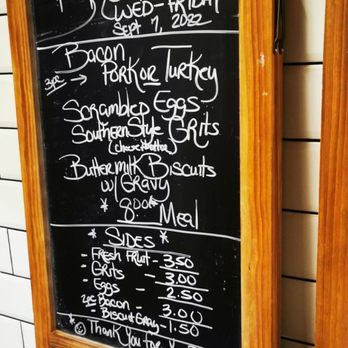 WED-FRIDAY
Sept 7, 2022
Bacon
3pc Pork or Turkey
Scrambled Eggs
Southern Style Grits
(cheese + butter)
Buttermilk Biscuits
w/ Gravy
* 8.00 Meal
* SIDES *
- Fresh Fruit - 3.50
- Grits - 3.00
- Eggs - 2.50
4pc Bacon - 3.00
- Biscuit Gravy - 1.50
* Thank You for